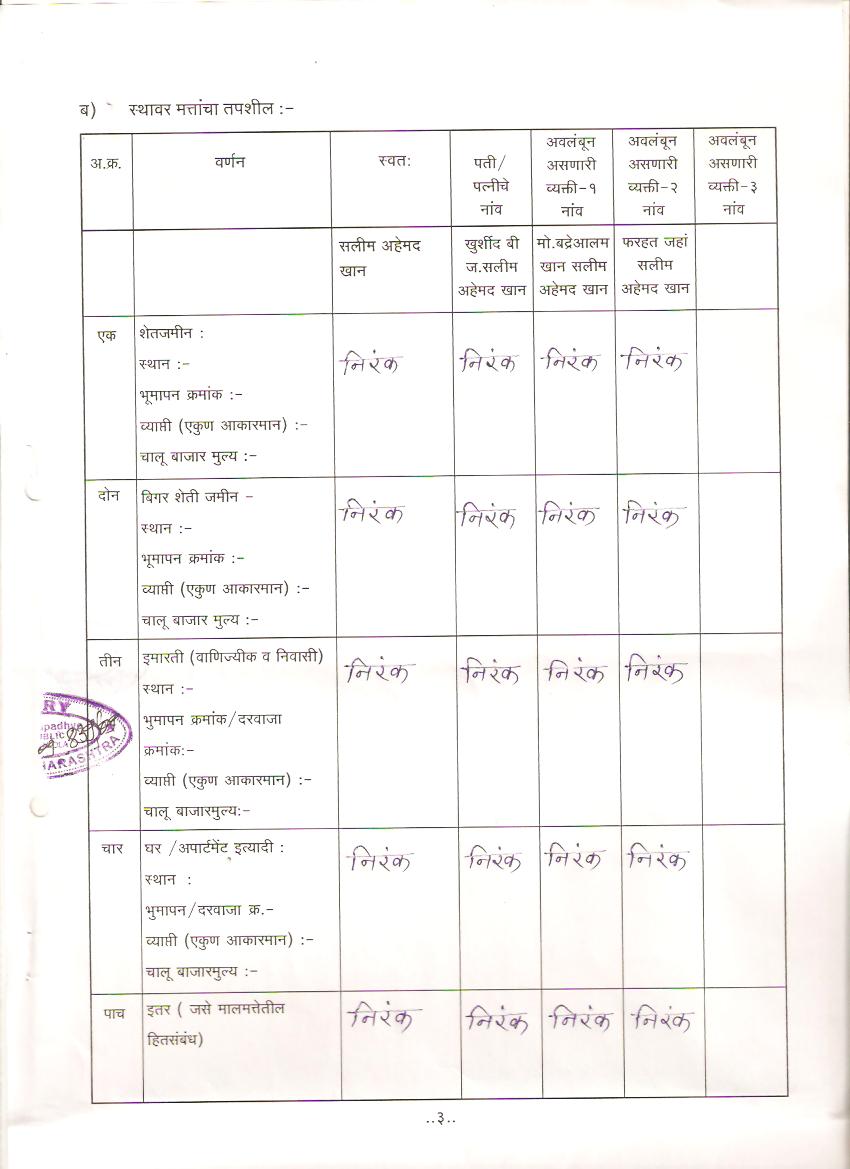 ब) स्थावर मत्तांचा तपशील :-
अ.क्र. वर्णन स्वतः पती/ पत्नीचे नांव अवलंबून असणारी व्यक्ती-१ नांव अवलंबून असणारी व्यक्ती-२ नांव अवलंबून असणारी व्यक्ती-३ नांव
सलीम अहेमद खान खुर्शीद बी ज.सलीम अहेमद खान मो.बद्रेआलम खान सलीम अहेमद खान फरहत जहां सलीम अहेमद खान
एक शेतजमीन :
स्थान :- निरंक निरंक निरंक निरंक
भूमापन क्रमांक :-
व्याप्ती (एकुण आकारमान) :-
चालू बाजार मुल्य :-
दोन बिगर शेती जमीन - निरंक निरंक निरंक निरंक
स्थान :-
भूमापन क्रमांक :-
व्याप्ती (एकुण आकारमान) :-
चालू बाजार मुल्य :-
तीन इमारती (वाणिज्यीक व निवासी) निरंक निरंक निरंक निरंक
स्थान :-
भुमापन क्रमांक/दरवाजा
क्रमांक:-
व्याप्ती (एकुण आकारमान) :-
चालू बाजारमुल्य:-
चार घर /अपार्टमेंट इत्यादी : निरंक निरंक निरंक निरंक
स्थान :
भुमापन/दरवाजा क्र.-
व्याप्ती (एकुण आकारमान) :-
चालू बाजारमुल्य :-
पाच इतर ( जसे मालमत्तेतील निरंक निरंक निरंक निरंक
हितसंबंध)
..३..